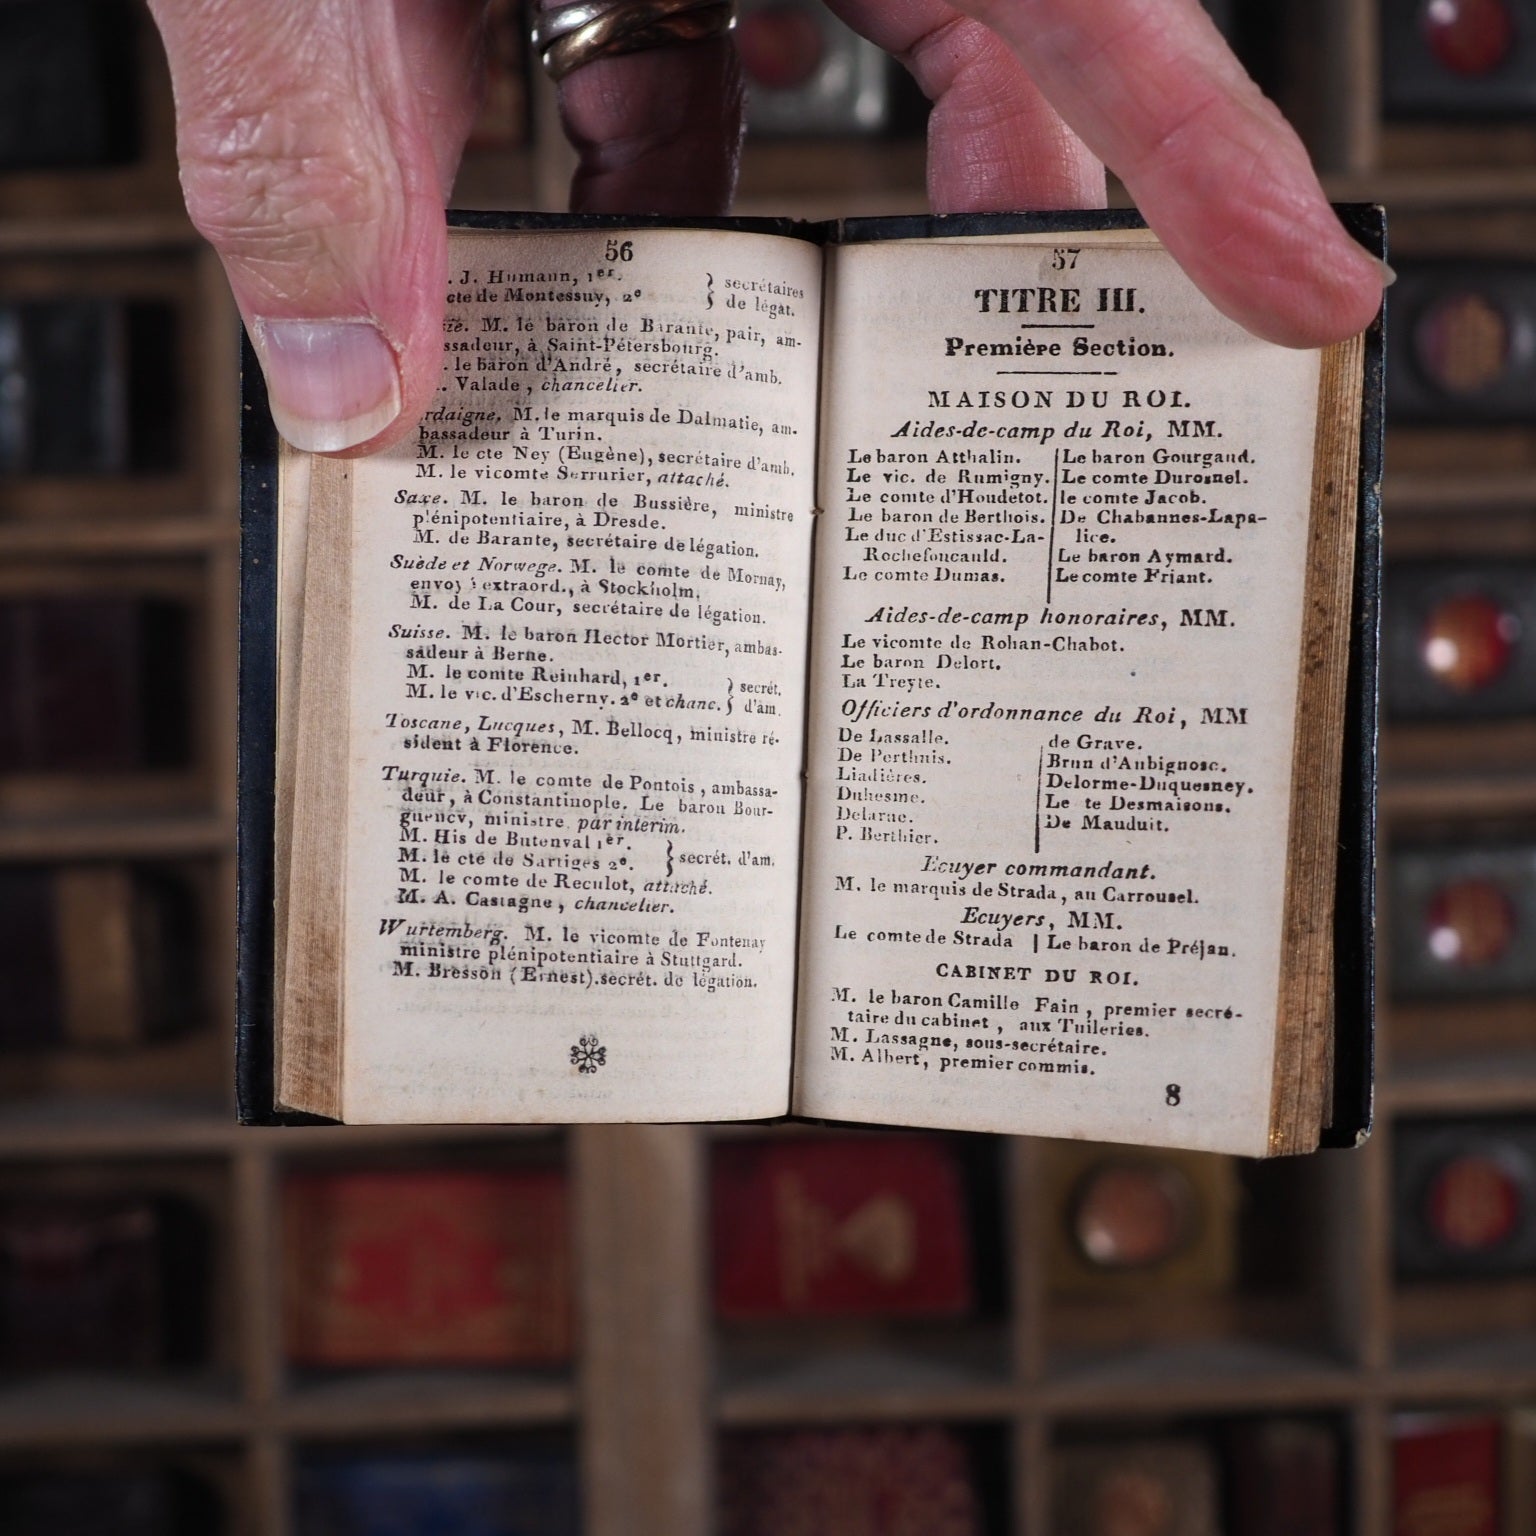 56
J. Humann, 1er. } secrétaires
cte de Montessuy, 2e } de légat.
M. le baron de Barante, pair, am-
ssadeur, à Saint-Pétersbourg.
le baron d'André, secrétaire d'amb.
Valade, chancelier.
rdaigne. M. le marquis de Dalmatie, am-
bassadeur à Turin.
M. le cte Ney (Eugène), secrétaire d'amb.
M. le vicomte Serrurier, attaché.
Saxe. M. le baron de Bussière, ministre
plénipotentiaire, à Dresde.
M. de Barante, secrétaire de légation.
Suède et Norwege. M. le comte de Mornay,
envoyé extraord., à Stockholm.
M. de La Cour, secrétaire de légation.
Suisse. M. le baron Hector Mortier, ambas-
sadeur à Berne.
M. le comte Reinhard, 1er. } secrét.
M. le vic. d'Escherny. 2e et chanc. } d'am.
Toscane, Lucques, M. Bellocq, ministre ré-
sident à Florence.
Turquie. M. le comte de Pontois, ambassa-
deur, à Constantinople. Le baron Bour-
guency, ministre par interim.
M. His de Butenval 1er.
M. le cte de Sartiges 2e. } secrét. d'am.
M. le comte de Reculot, attaché.
M. A. Castagne, chancelier.
Wurtemberg. M. le vicomte de Fontenay
ministre plénipotentiaire à Stuttgard.
M. Bresson (Ernest). secrét. de légation.
57
TITRE III.
Première Section.
MAISON DU ROI.
Aides-de-camp du Roi, MM.
Le baron Atthalin.
Le vic. de Rumigny.
Le comte d'Houdetot.
Le baron de Berthois.
Le duc d'Estissac-La-
Rochefoucauld.
Le comte Dumas.
Le baron Gourgaud.
Le comte Durosnel.
le comte Jacob.
De Chabannes-Lapa-
lice.
Le baron Aymard.
Le comte Friant.
Aides-de-camp honoraires, MM.
Le vicomte de Rohan-Chabot.
Le baron Delort.
La Treyte.
Officiers d'ordonnance du Roi, MM
De Lassalle.
De Perthuis.
Liadières.
Duhesme.
Delarue.
P. Berthier.
de Grave.
Brun d'Aubignosc.
Delorme-Duquesney.
Le te Desmaisons.
De Mauduit.
Ecuyer commandant.
M. le marquis de Strada, au Carrousel.
Ecuyers, MM.
Le comte de Strada | Le baron de Préjan.
CABINET DU ROI.
M. le baron Camille Fain, premier secré-
taire du cabinet, aux Tuileries.
M. Lassagne, sous-secrétaire.
M. Albert, premier commis.
8